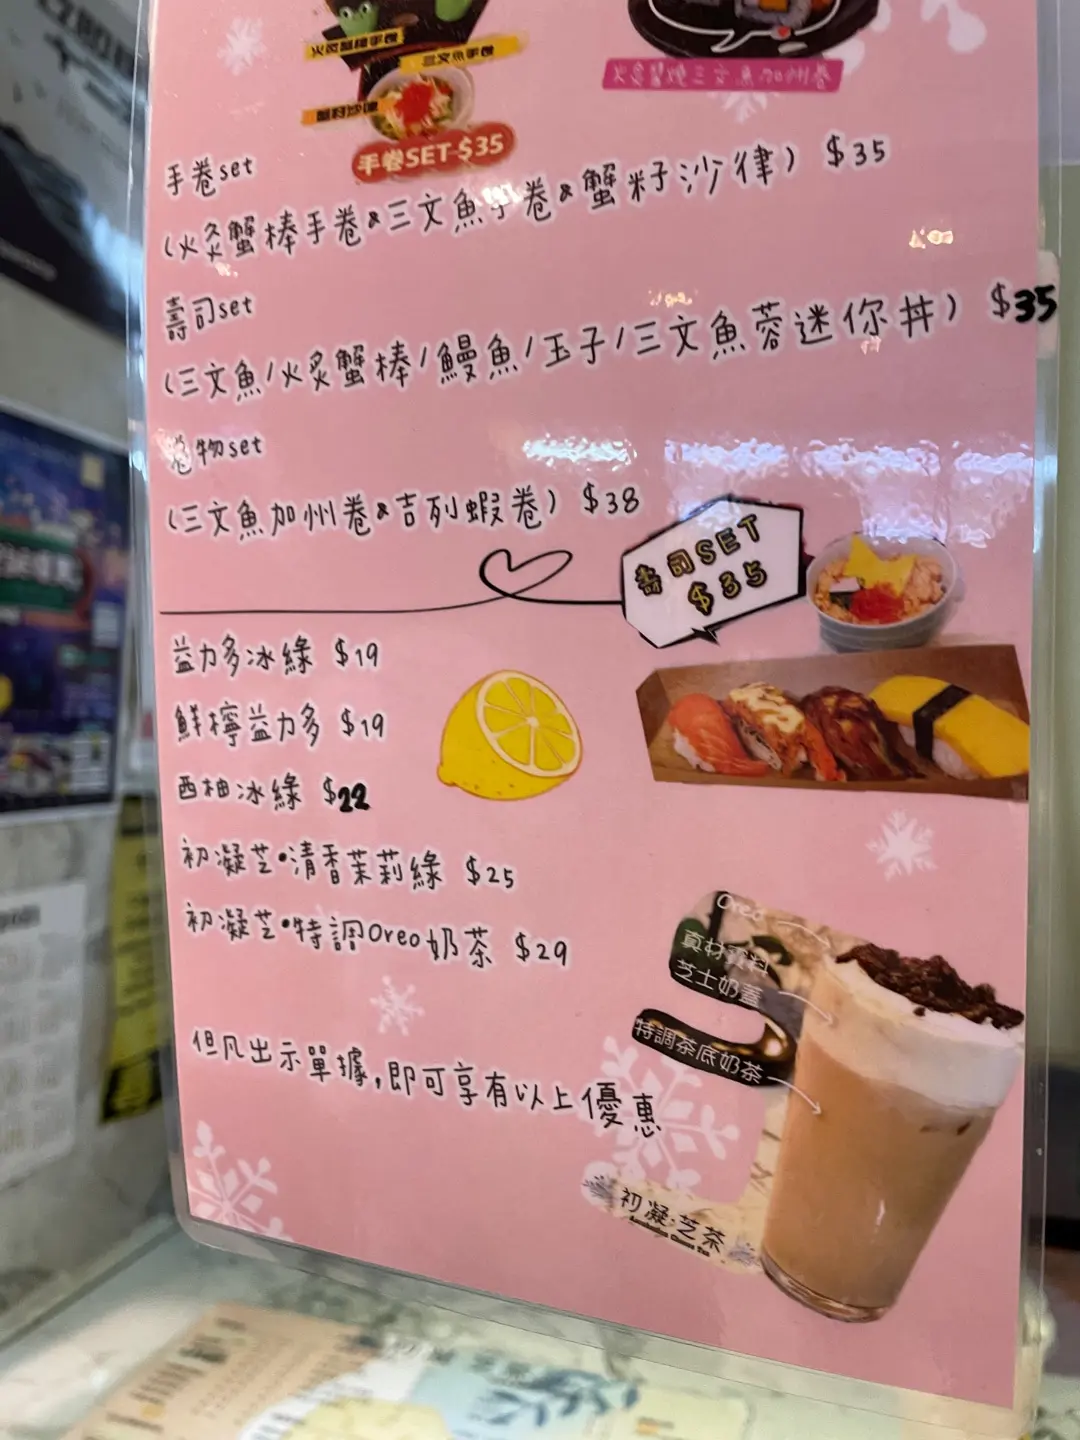 火炙蟹棒手卷
三文魚手卷
蟹籽沙律
手卷SET $35
火炙蟹燒三文魚加州卷
手卷set
(火炙蟹棒手卷&三文魚手卷&蟹籽沙律) $35
壽司set
(三文魚/火炙蟹棒/鰻魚/玉子/三文魚蓉迷你丼) $35
卷物set
(三文魚加州卷&吉列蝦卷) $38
壽司SET
$35
益力多冰緣 $19
鮮檸益力多 $19
西柚冰緣 $22
初凝芝•清香茉莉緣 $25
初凝芝•特調Oreo奶茶 $29
Oreo
真材實料
芝士奶蓋
特調茶底奶茶
但凡出示單據,即可享有以上優惠
初凝·芝茶